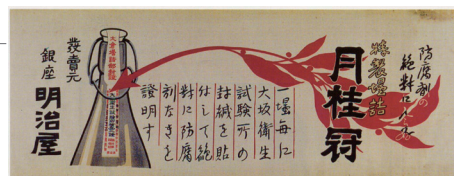 防腐剤の
絶対に入らぬ
特製壜詰
月桂冠
一壜毎に
大坂衛生
試験所の
封緘を貼
付して絶
対に防腐
剤なきを
證明す
發賣元
銀座
明治屋